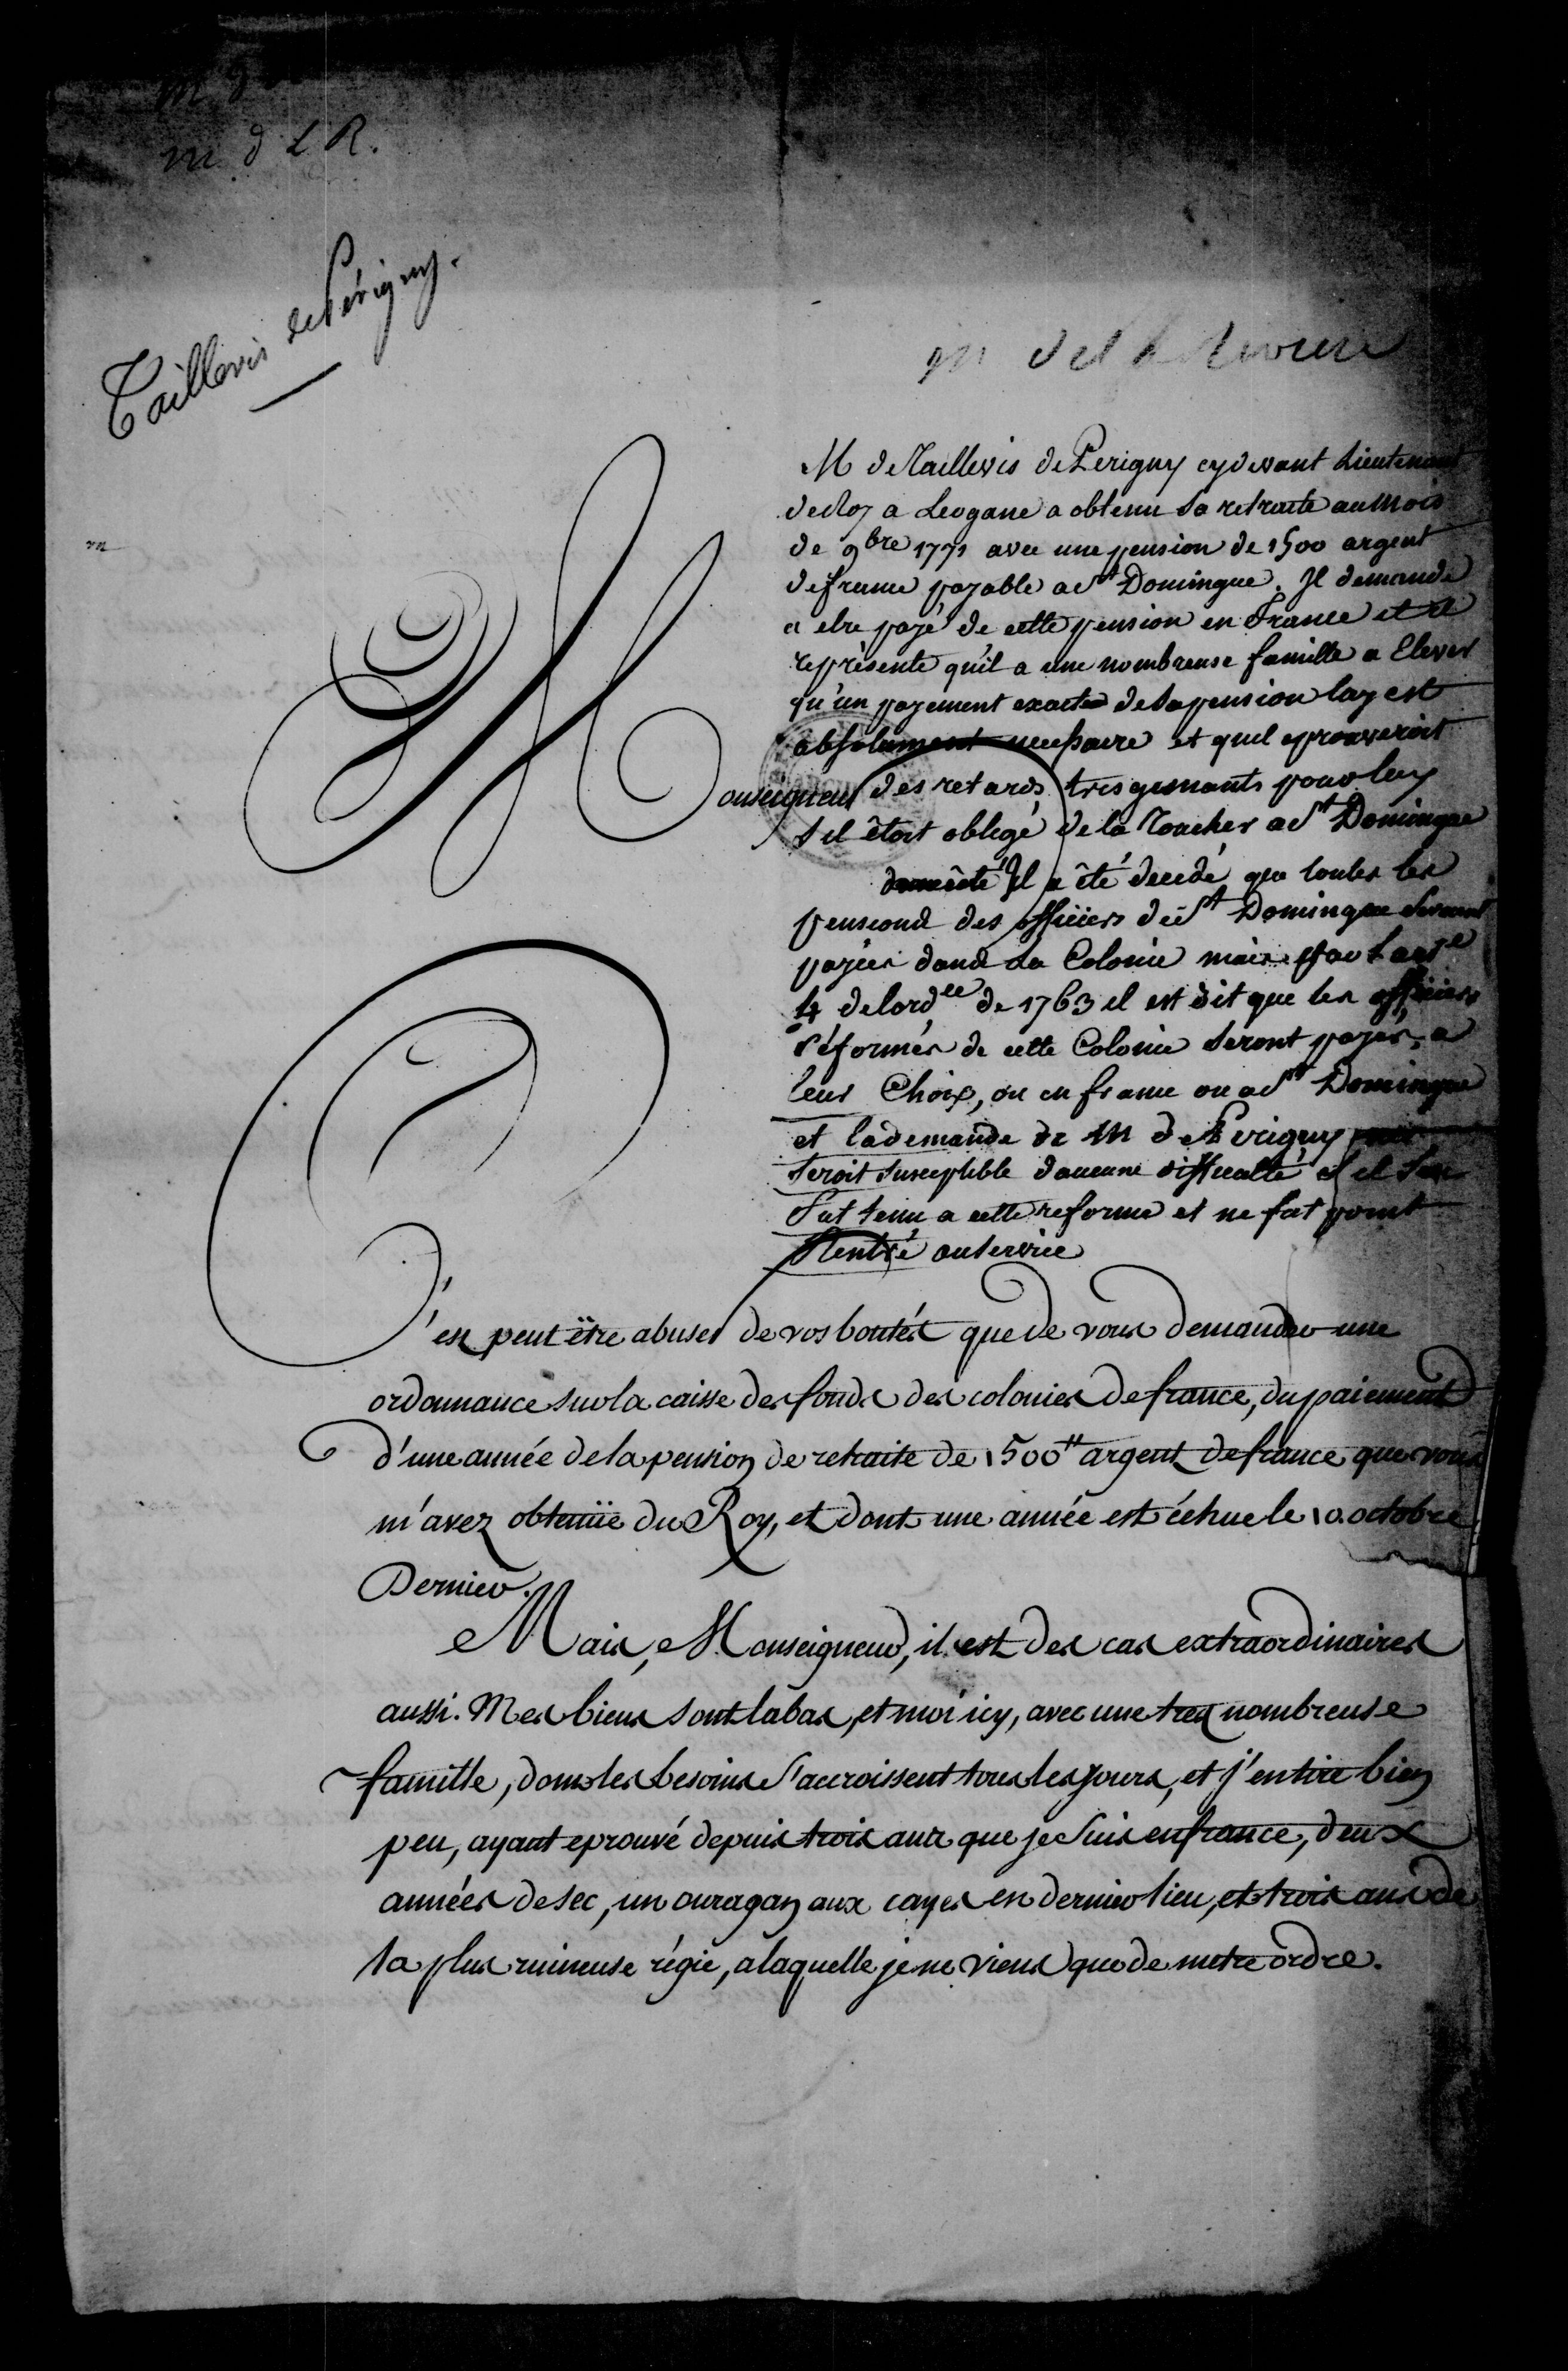 m d L R.
Taillevis de Périgny.
M de Taillevis de Perigny cy devant Lieutenant
de Roy a Leogane a obtenu sa retraite au mois
de 9bre 1771 avec une pension de 1500 argent
de france payable a St Domingue. Il demande
a etre payé de cette pension en France et il
représente qu'il a une nombreuse famille a Elever
qu'un payement exacte de sa pension luy est
absolument necessaire et quil eprouveroit
des retards tres gesnants pour luy
s'il êtoit obligé de la Toucher a St Domingue
Il a été decidé que toutes les
pensions des officiers de St Domingue seroient
payées dans la Colonie mais par l'arte
4 de lordce de 1763 il est dit que les officiers
réformés de cette Colonie seront payés, a
leur Choix, ou en france ou a St Domingue
et la demande de M de Perigny
seroit susceptible daucune difficulté s'il s'en
fut tenu a cette reforme et ne fut point
Rentré au service
Monseigneur
C'est peut être abuser de vos bontés que de vous demander une
ordonnance sur la caisse des fonds des colonies de france, du paiement
d'une année de la pension de retraite de 1500tt argent de france que vous
m'avez obtenüe du Roy, et dont une année est échue le 10 octobre
Dernier.
Mais, Monseigneur, il est des cas extraordinaires
aussi. Mes biens sont labas, et moi icy, avec une tres nombreuse
famille, dont les besoins s'accroissent tous les jours, et j'en tire bien
peu, ayant eprouvé depuis trois ans que je suis en france, deux
années de sec, un ouragan aux cayes en dernier lieu, et trois ans de
la plus ruineuse régie, a laquelle je ne viens que de metre ordre.